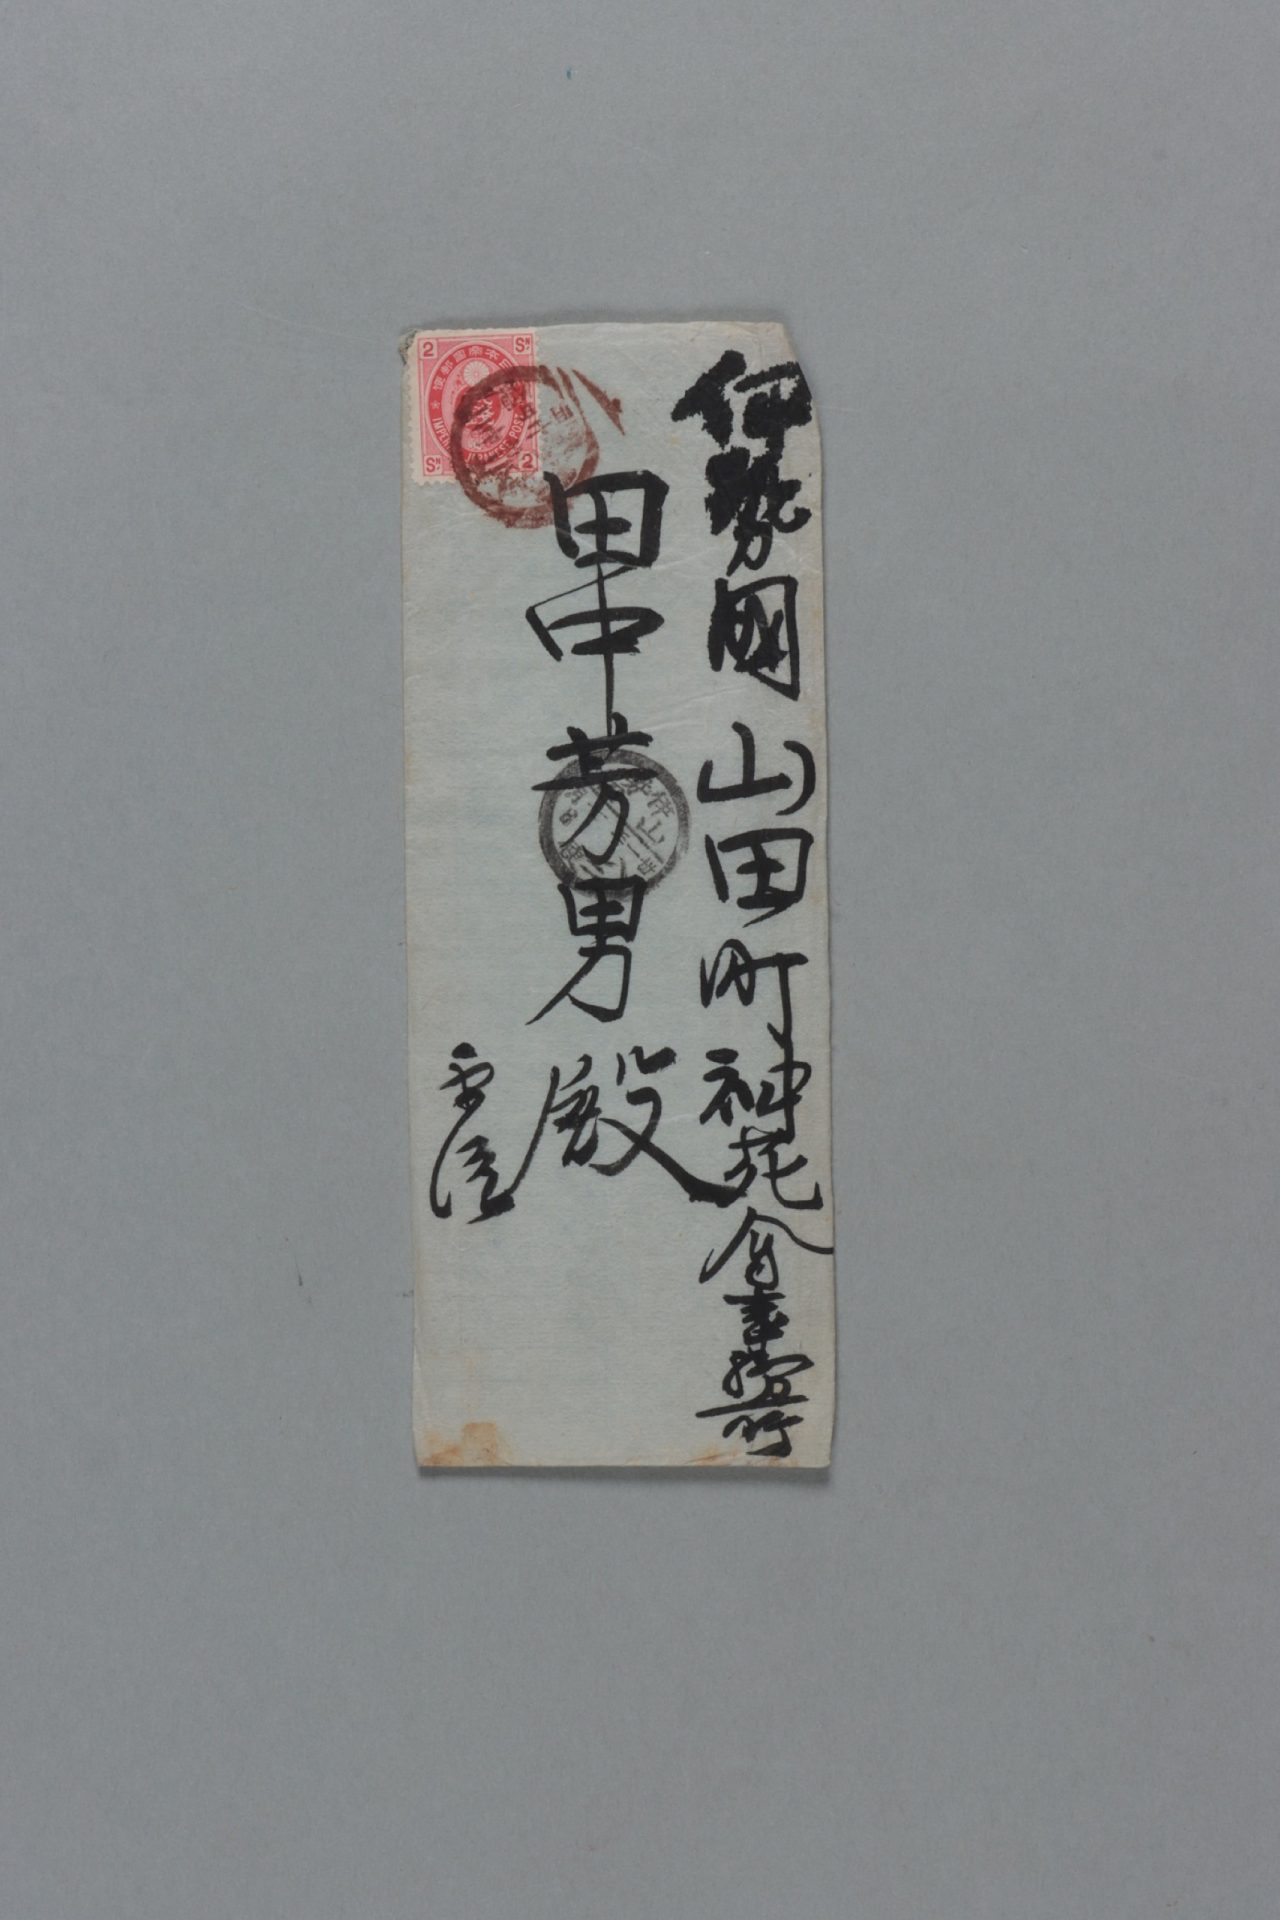 伊勢國山田町神苑会事務所
田中芳男殿
平信
2 SN
大日本帝国郵便
IMPERIAL JAPANESE POST
SN 2